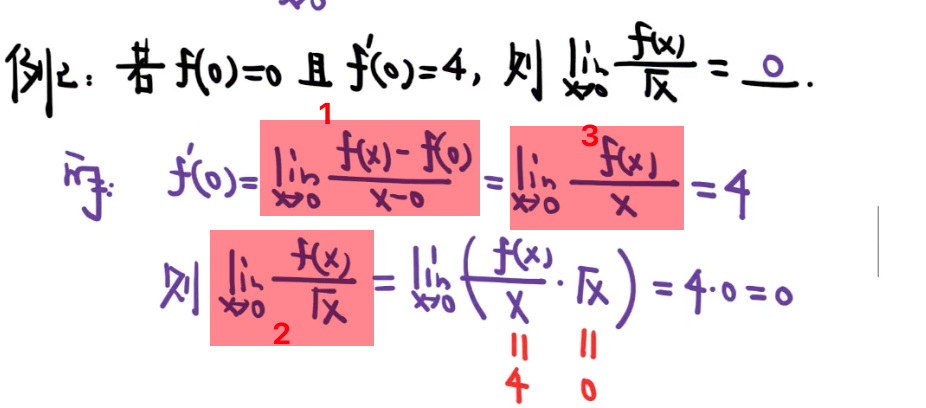 x→0
例2: 若 f(0)=0 且 f'(0)=4, 则 lim x→0 f(x)/√x = 0 .
1 3
解: f'(0)= lim x→0 (f(x)-f(0))/(x-0) = lim x→0 f(x)/x = 4
则 lim x→0 f(x)/√x = lim x→0 ( f(x)/x · √x ) = 4·0=0
2 || ||
4 0